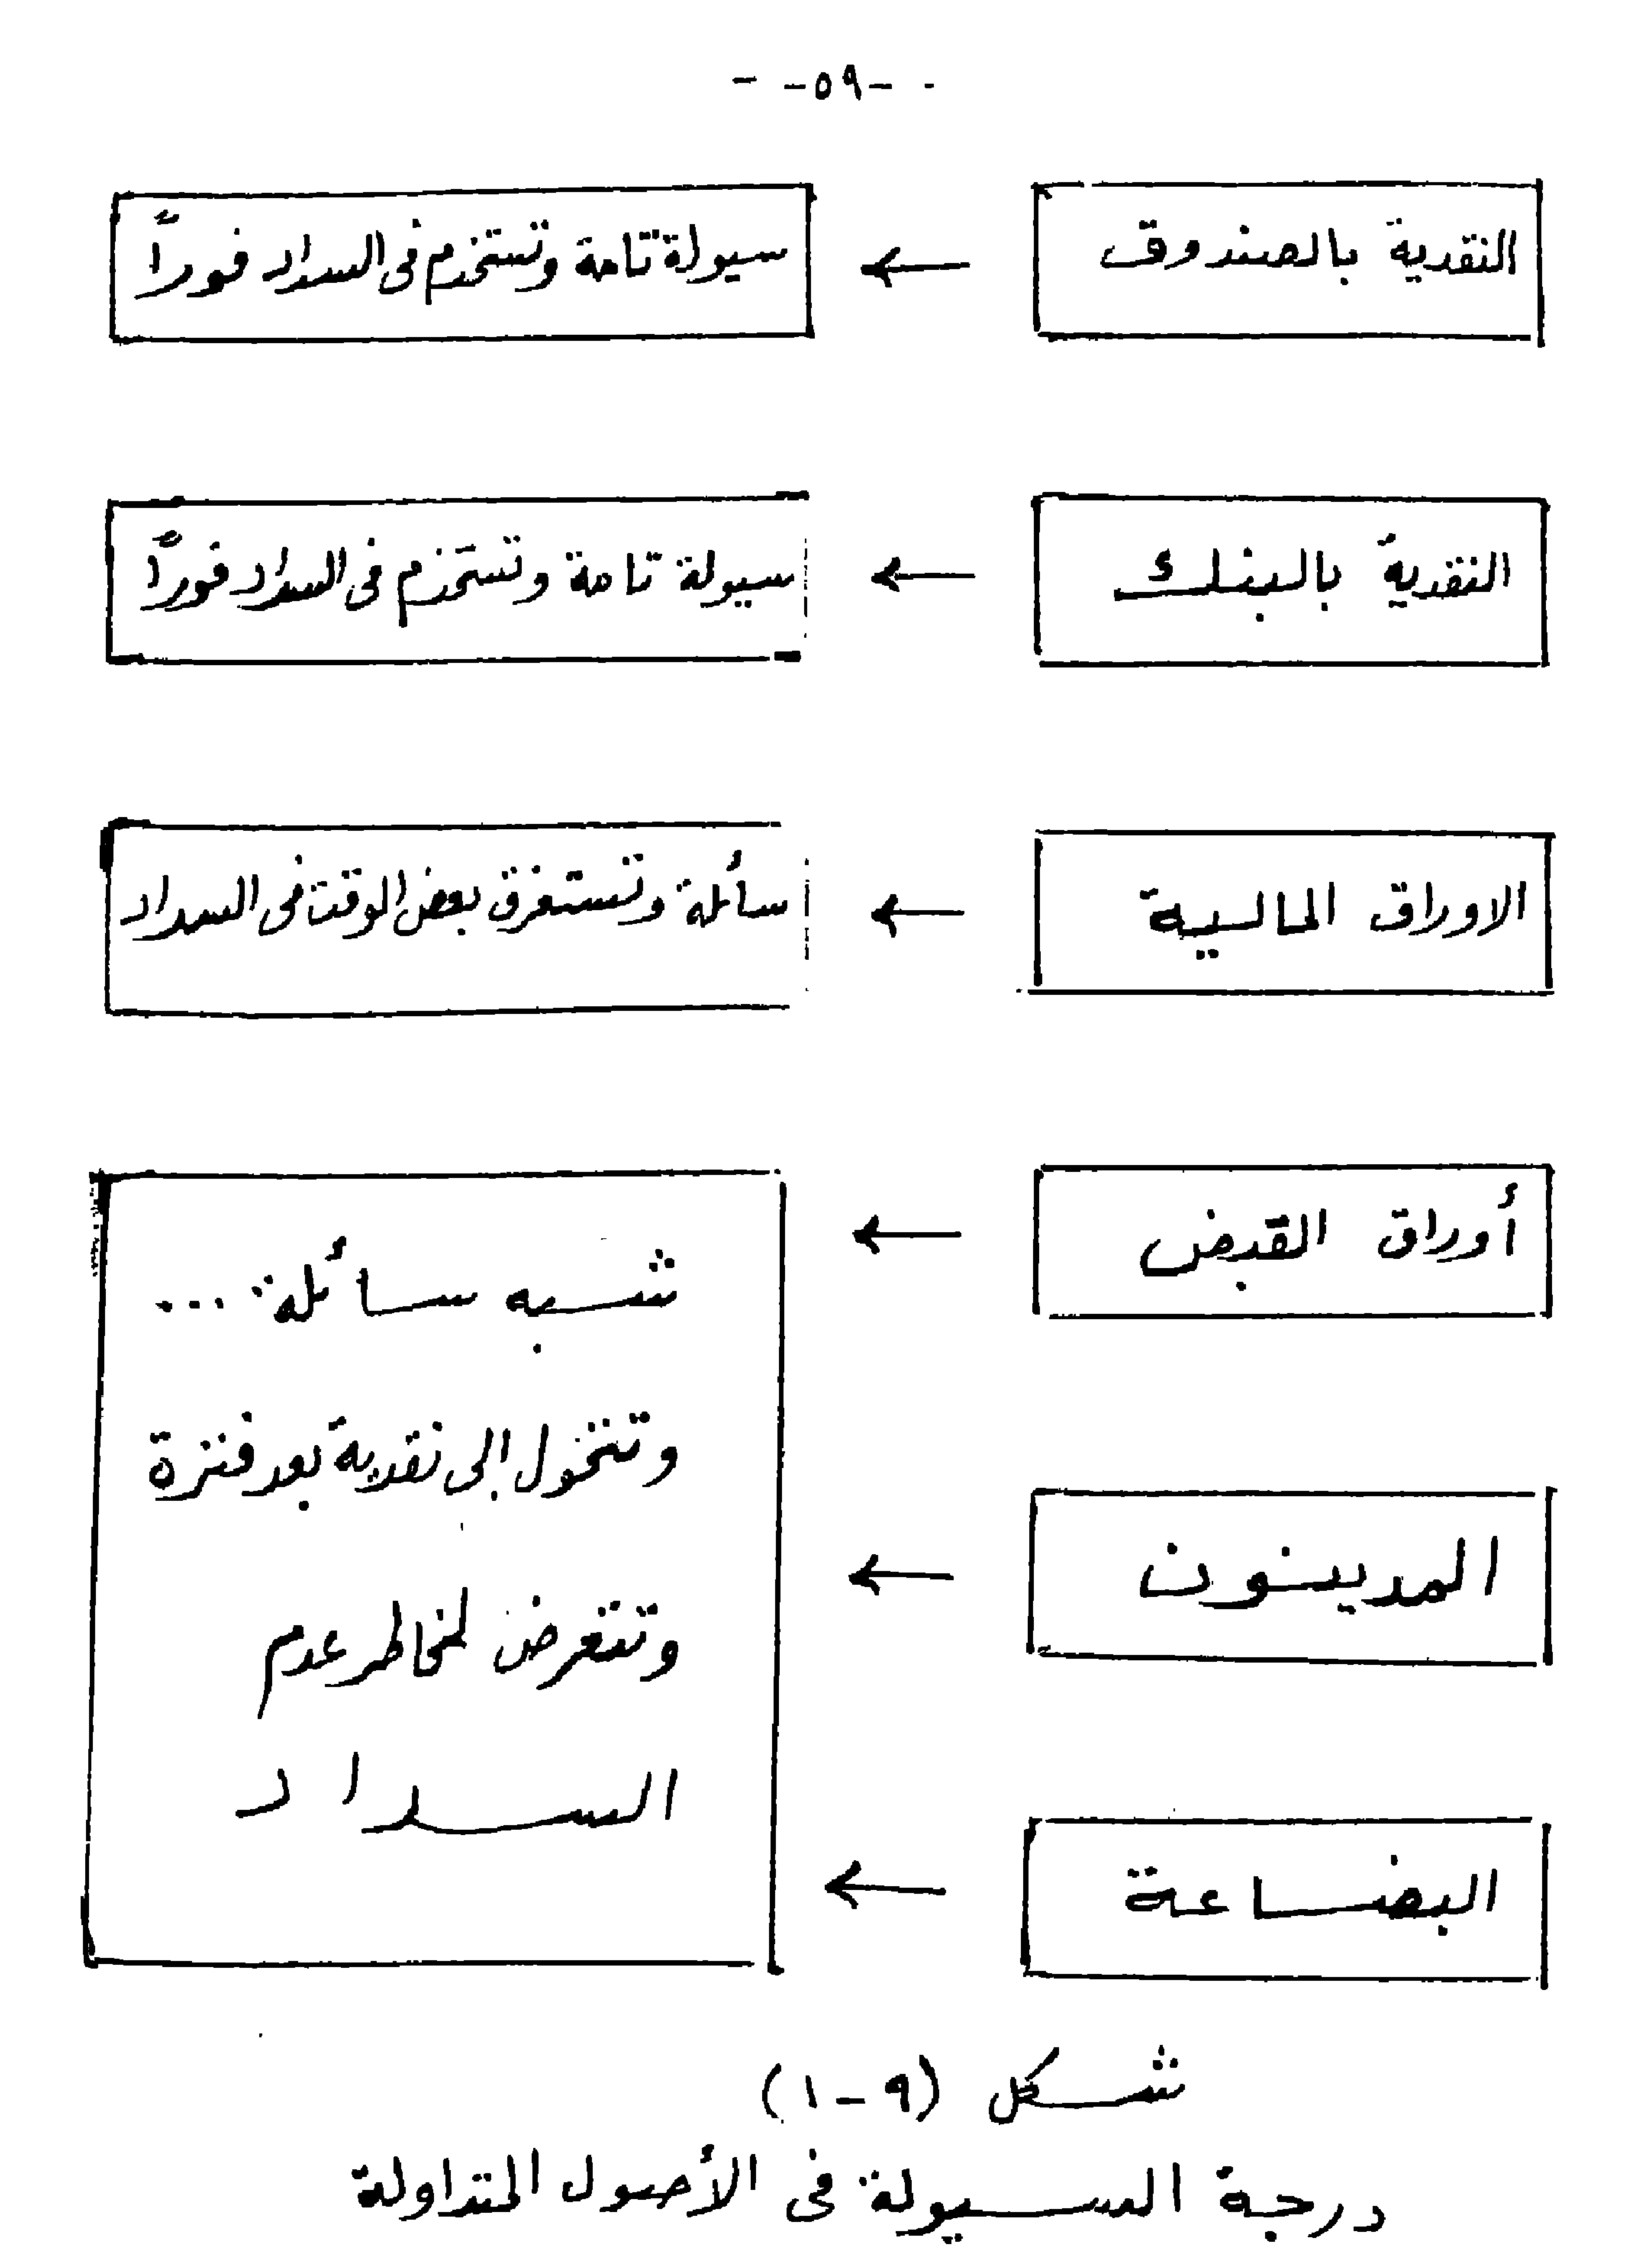 -٥٩-
النقدية بالصندوق ← سيولة تامة وتستخدم فى السداد فوراً
النقدية بالبنك ← سيولة تامة وتستخدم فى السداد فوراً
الاوراق المالية ← سائلة وتستغرق بعض الوقت فى السداد
أوراق القبض ←
المدينون ←
البضاعة ←
شبه سائلة ...
وتتحول إلى نقدية بعد فترة
وتتعرض لمخاطر عدم
السداد
شكل (٩-١)
درجة السيولة فى الأصول المتداولة